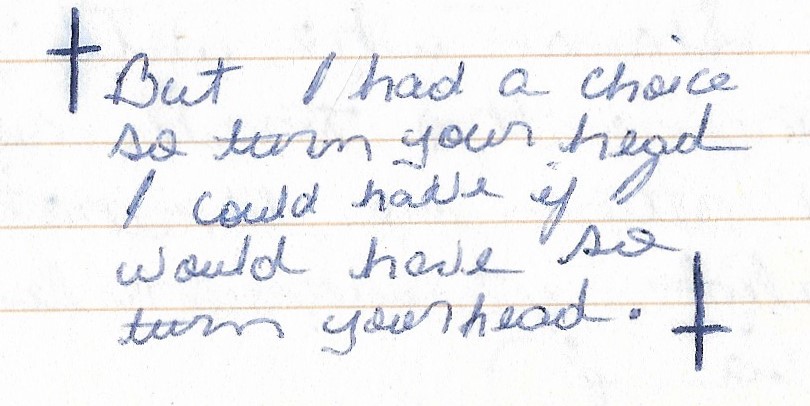 But I had a choice
so turn your head
I could have if I
would have so
turn your head.